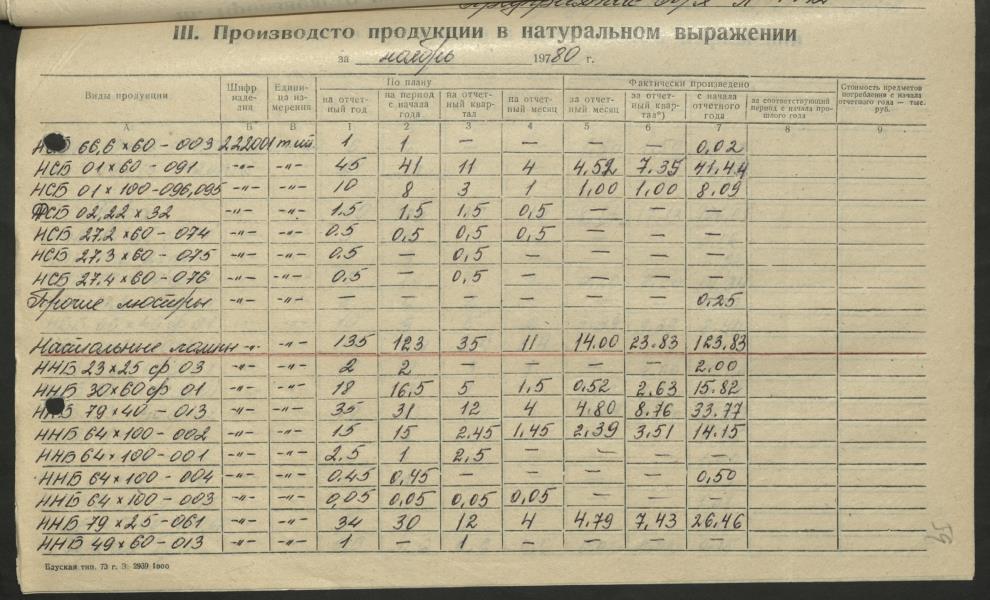 III. Производсто продукции в натуральном выражении
за ноябрь 1980 г.
Виды продукции | Шифр изделия | Единица измерения | По плану | Фактически произведено | Стоимость предметов потребления с начала отчетного года — тыс. руб.
на отчетный год | на период с начала года | на отчетный квартал | на отчетный месяц | за отчетный месяц | за отчетный квартал*) | с начала отчетного года | за соответствующий период с начала прошлого года
А | Б | В | 1 | 2 | 3 | 4 | 5 | 6 | 7 | 8 | 9
НСБ 66,6×60–003 | 222001 | т.шт. | 1 | 1 | — | — | — | — | 0,02
НСБ 01×60–091 | –"– | –"– | 45 | 41 | 11 | 4 | 4,52 | 7.35 | 41.44
НСБ 01×100–096,095 | –"– | –"– | 10 | 8 | 3 | 1 | 1,00 | 1,00 | 8.09
СБ 02,22×32 | –"– | –"– | 1.5 | 1,5 | 1,5 | 0,5 | — | — | —
НСБ 27.2×60–074 | –"– | –"– | 0.5 | 0,5 | 0,5 | 0,5 | — | — | —
НСБ 27.3×60–075 | –"– | –"– | 0.5 | — | 0,5 | — | — | — | —
НСБ 27.4×60–076 | –"– | –"– | 0.5 | — | 0,5 | — | — | — | —
Прочие люстры | –"– | –"– | — | — | — | — | — | — | 0,25
Настольные лампы | –"– | –"– | 135 | 123 | 35 | 11 | 14.00 | 23.83 | 123,83
ННБ 23×25 ф 03 | –"– | –"– | 2 | 2 | — | — | — | — | 2.00
ННБ 30×60 ф 01 | –"– | –"– | 18 | 16,5 | 5 | 1,5 | 0.52 | 2.63 | 15.82
ННБ 79×40–013 | –"– | –"– | 35 | 31 | 12 | 4 | 4.80 | 8.76 | 33.77
ННБ 64×100–002 | –"– | –"– | 15 | 15 | 2.45 | 1,45 | 2,39 | 3,51 | 14.15
ННБ 64×100–001 | –"– | –"– | 2,5 | 1 | 2,5 | — | — | — | —
ННБ 64×100–004 | –"– | –"– | 0.45 | 0,45 | — | — | — | — | 0,50
ННБ 64×100–003 | –"– | –"– | 0,05 | 0,05 | 0,05 | 0,05 | — | — | —
ННБ 79×25–061 | –"– | –"– | 34 | 30 | 12 | 4 | 4.79 | 7,43 | 26,46
ННБ 49×60–013 | –"– | –"– | 1 | — | 1 | — | — | — | —
Бауская тип. 73 г. З. 2939 1900
59